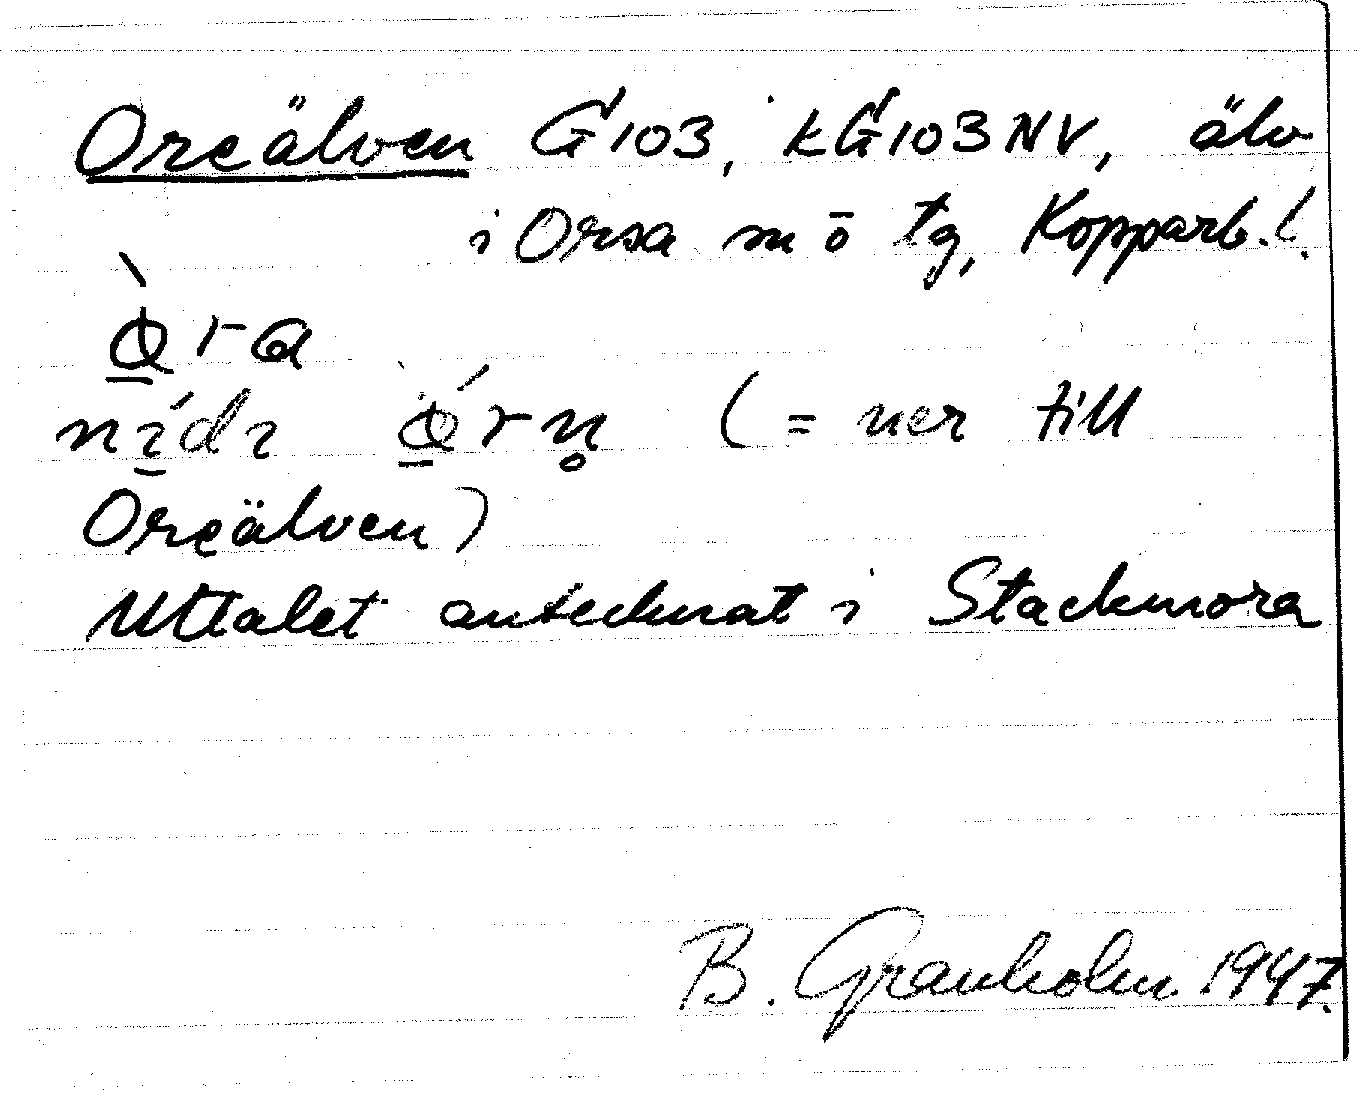 Oreälven G103, kG103NV, älv
i Orsa m ö tg, Kopparb.l.
ὸ̨ra
nídı ǿrn̥ (= ner till
Oreälven)
Uttalet antecknat i Stackmora
B. Granholm 1947.